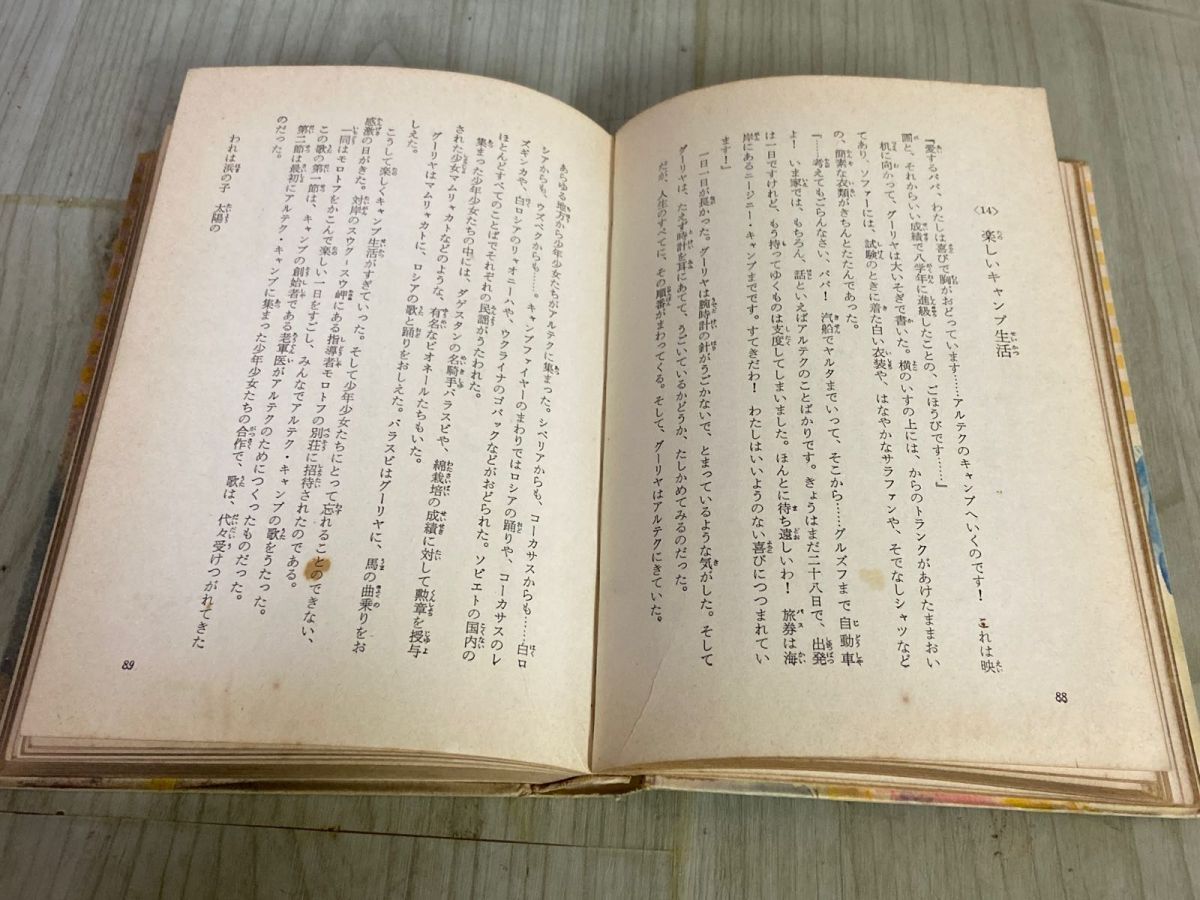 〈14〉 楽しいキャンプ生活
『愛するパパ、わたしは喜びで胸がおどっています……アルテクのキャンプへいくのです！ これは映
画と、それからいい成績で八学年に進級したことの、ごほうびです……』
机に向かって、グーリヤは大いそぎで書いた。横のいすの上には、からのトランクがあけたままおい
てあり、ソファーには、試験のときに着た白い衣装や、はなやかなサラファンや、そでなしシャツなど
の、簡素な衣類がきちんとたたんであった。
『……考えてもごらんなさい、パパ！ 汽船でヤルタまでいって、そこから……グルズフまで自動車
よ！ いま家では、もちろん、話といえばアルテクのことばかりです。きょうはまだ二十八日で、出発
は一日ですけれど、もう持ってゆくものは支度してしまいました。ほんとに待ち遠しいわ！ 旅券は海
岸にあるニージニー・キャンプまでです。すてきだわ！ わたしはいいようのない喜びにつつまれてい
ます！』
一日一日が長かった。グーリヤは腕時計の針がうごかないで、とまっているような気がした。そして
グーリヤは、たえず時計を耳にあてて、うごいているかどうか、たしかめてみるのだった。
だが、人生のすべてに、その順番がまわってくる。そして、グーリヤはアルテクにきていた。
88
あらゆる地方から少年少女たちがアルテクに集まった。シベリアからも、コーカサスからも……白ロ
シアからも、ウズベクからも……。キャンプファイヤーのまわりではロシアの踊りや、コーカサスのレ
ズギンカや、白ロシアのリャオニーハや、ウクライナのゴパックなどがおどられた。ソビエトの国内の
ほとんどすべてのことばでそれぞれの民謡がうたわれた。
集まった少年少女たちの中には、ダゲスタンの名騎手バラスビや、綿栽培の成績に対して勲章を授与
された少女マムリャカトなどのような、有名なピオネールたちもいた。
グーリヤはマムリャカトに、ロシアの歌と踊りをおしえた。バラスビはグーリヤに、馬の曲乗りをお
しえた。
こうして楽しくキャンプ生活がすぎていった。そして少年少女たちにとって忘れることのできない、
感激の日がきた。対岸のスウグ＝スウ岬にある指導者モロトフの別荘に招待されたのである。
一同はモロトフをかこんで楽しい一日をすごし、みんなでアルテク・キャンプの歌をうたった。
この歌の第一節は、キャンプの創始者である老軍医がアルテクのためにつくったものだった。
第二節は最初にアルテク・キャンプに集まった少年少女たちの合作で、歌は、代々受けつがれてきた
のだった。
われは浜の子 太陽の
89